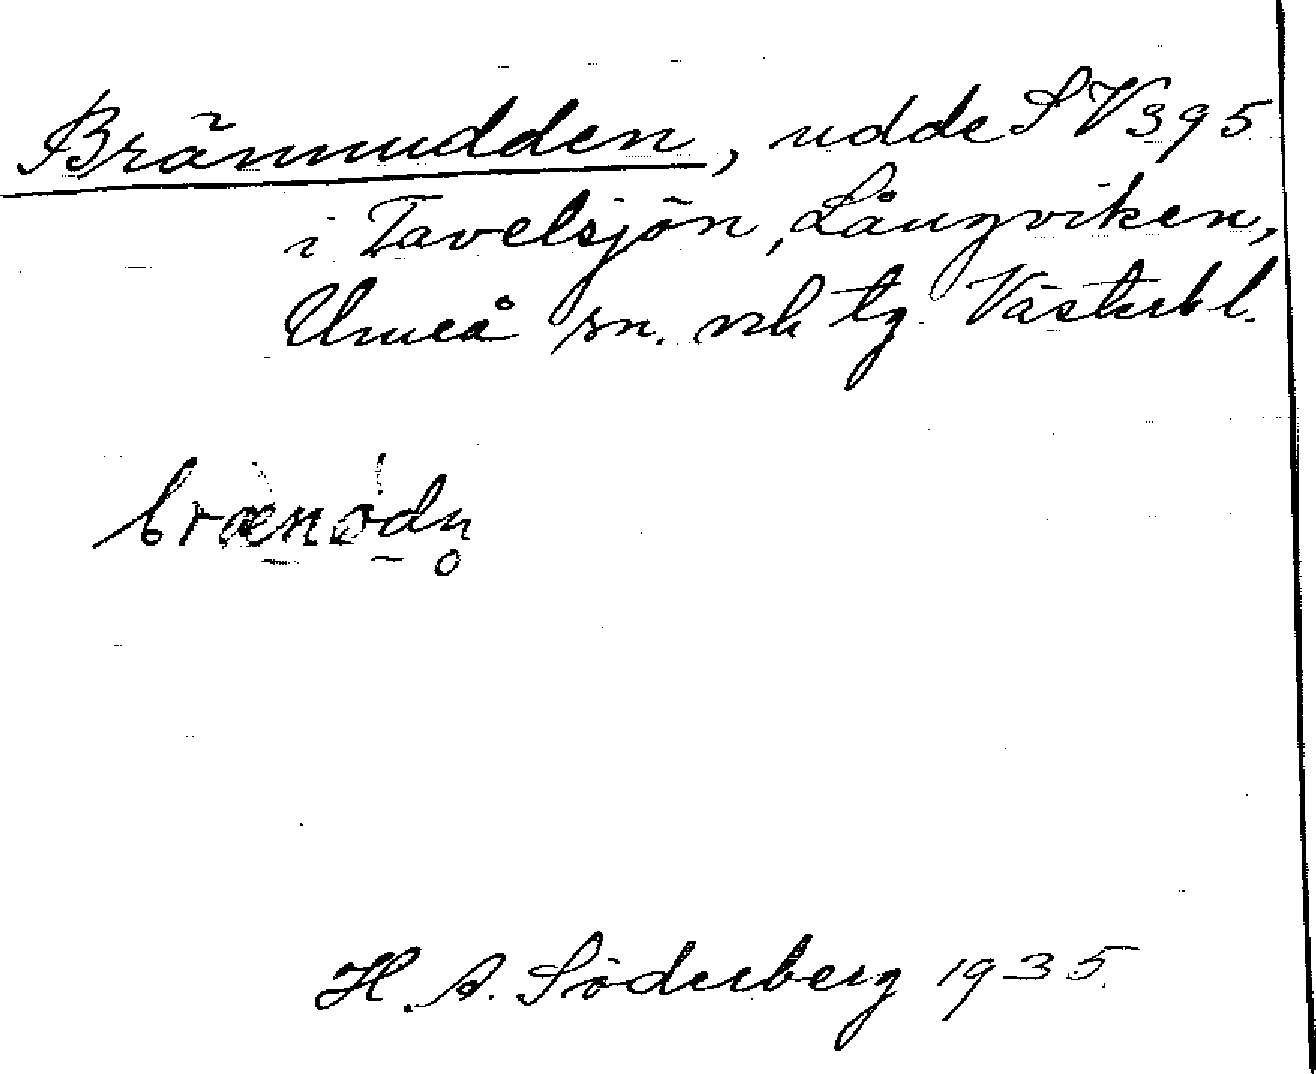 Brännudden, udde SV395
i Tavelsjön, Långviken,
Umeå sn. och tg. Västerbl.
brænødn̥
H. A. Söderberg 1935.